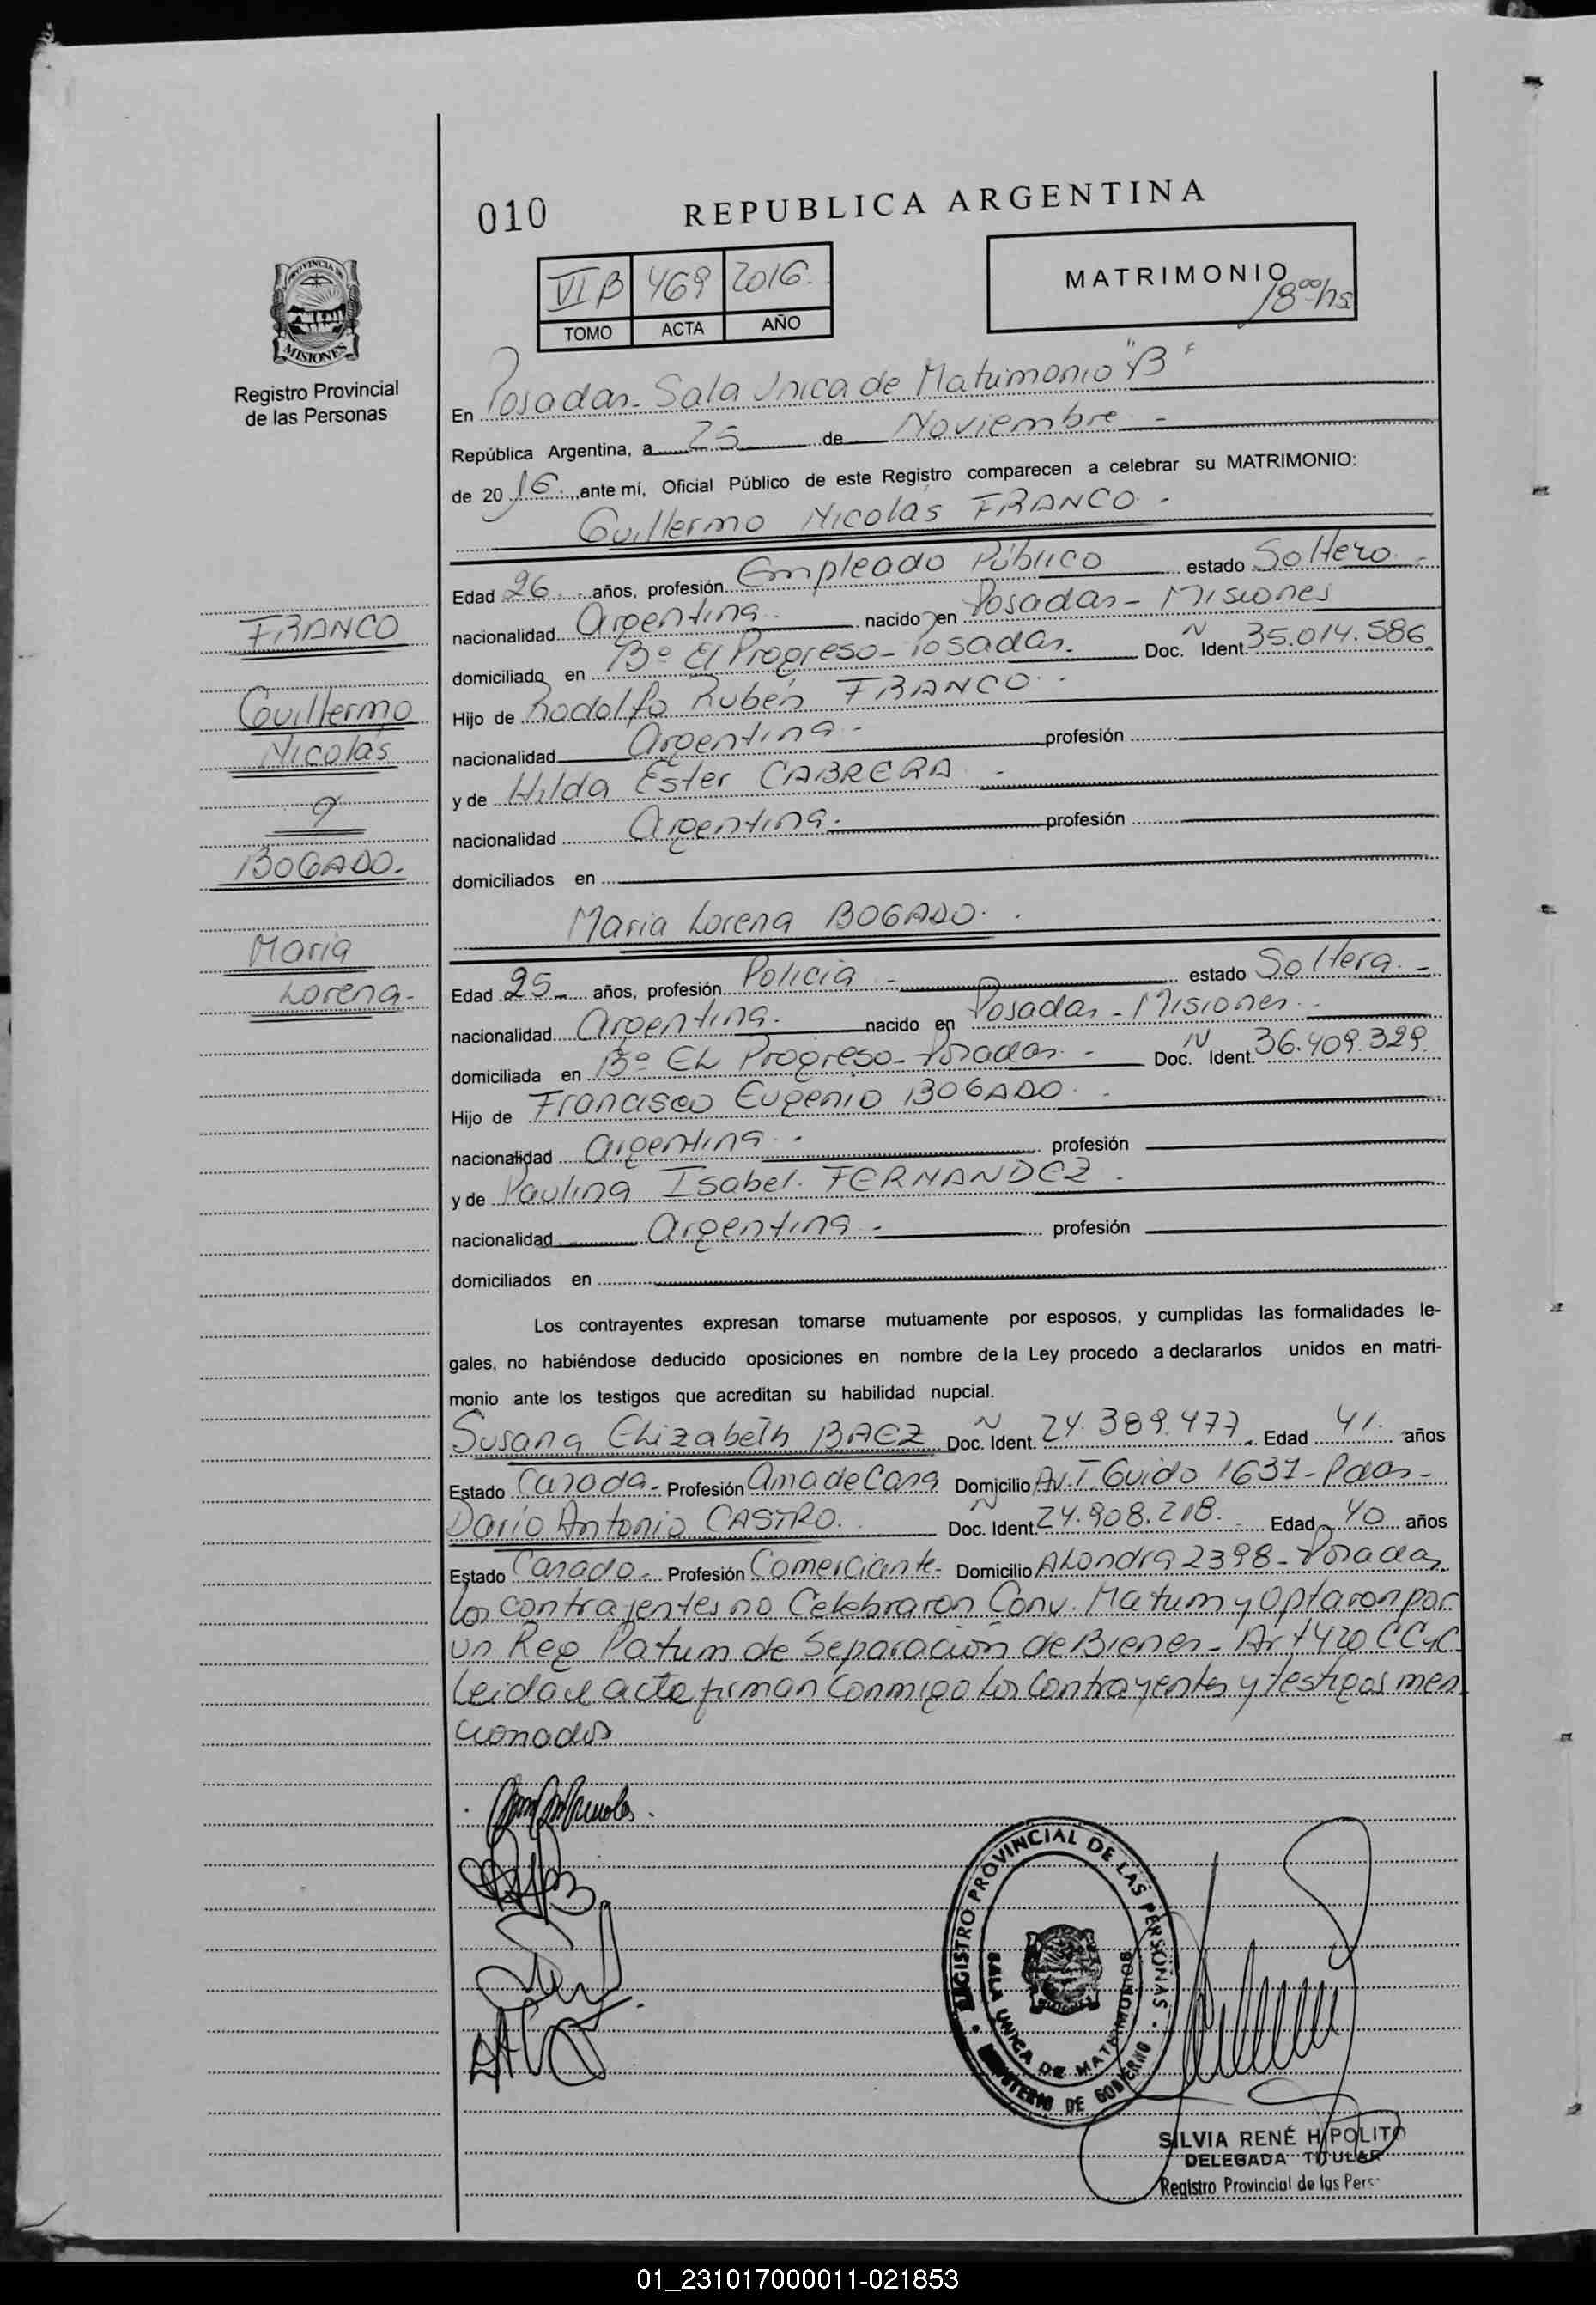 010
REPUBLICA ARGENTINA
VI B 469 2016.
TOMO ACTA AÑO
MATRIMONIO
18ºº hs
PROVINCIA DE
MISIONES
Registro Provincial
de las Personas
En Posadas - Sala Unica de Matrimonio "B"
República Argentina, a 25 de Noviembre -
de 2016. ante mí, Oficial Público de este Registro comparecen a celebrar su MATRIMONIO:
Guillermo Nicolás FRANCO -
Edad 26 años, profesión Empleado Público estado Soltero -
nacionalidad Argentina. nacido en Posadas - Misiones
domiciliado en Bº El Progreso - Posadas. Doc. N Ident. 35.014.586.
Hijo de Rodolfo Rubén FRANCO -
nacionalidad Argentina - profesión
y de Hilda Ester CABRERA -
nacionalidad Argentina - profesión
domiciliados en
Maria Lorena BOGADO.
Edad 25 - años, profesión Policia - estado Soltera -
nacionalidad Argentina. nacido en Posadas - Misiones -
domiciliada en Bº EL Progreso - Posadas - Doc. N Ident. 36.409.329.
Hijo de Francisco Eugenio BOGADO -
nacionalidad Argentina - profesión
y de Paulina Isabel FERNANDEZ.
nacionalidad Argentina - profesión
domiciliados en
FRANCO
Guillermo
Nicolás
y
BOGADO.
Maria
Lorena -
Los contrayentes expresan tomarse mutuamente por esposos, y cumplidas las formalidades le-
gales, no habiéndose deducido oposiciones en nombre de la Ley procedo a declararlos unidos en matri-
monio ante los testigos que acreditan su habilidad nupcial.
Susana Elizabeth BAEZ Doc. N Ident. 24.389.477. Edad 41. años
Estado Casada - Profesión Ama de Casa Domicilio Av. T. Guido 1637 - Pdas -
Dario Antonio CASTRO. Doc. N Ident. 24.908.218. Edad 40 años
Estado Casado - Profesión Comerciante - Domicilio ALondra 2398 - Posadas
Los contrayentes no Celebraron Conv. Matrim y Optaron por
un Reg Patrim de Separación de Bienes - Art 420 CCyC
Leida el acta firman Conmigo los Contrayentes y testigos men
cionados
REGISTRO PROVINCIAL DE LAS PERSONAS
SALA UNICA DE MATRIMONIOS
MINISTERIO DE GOBIERNO
SILVIA RENÉ HIPOLITO
DELEGADA TITULAR
Registro Provincial de las Pers
01_231017000011-021853